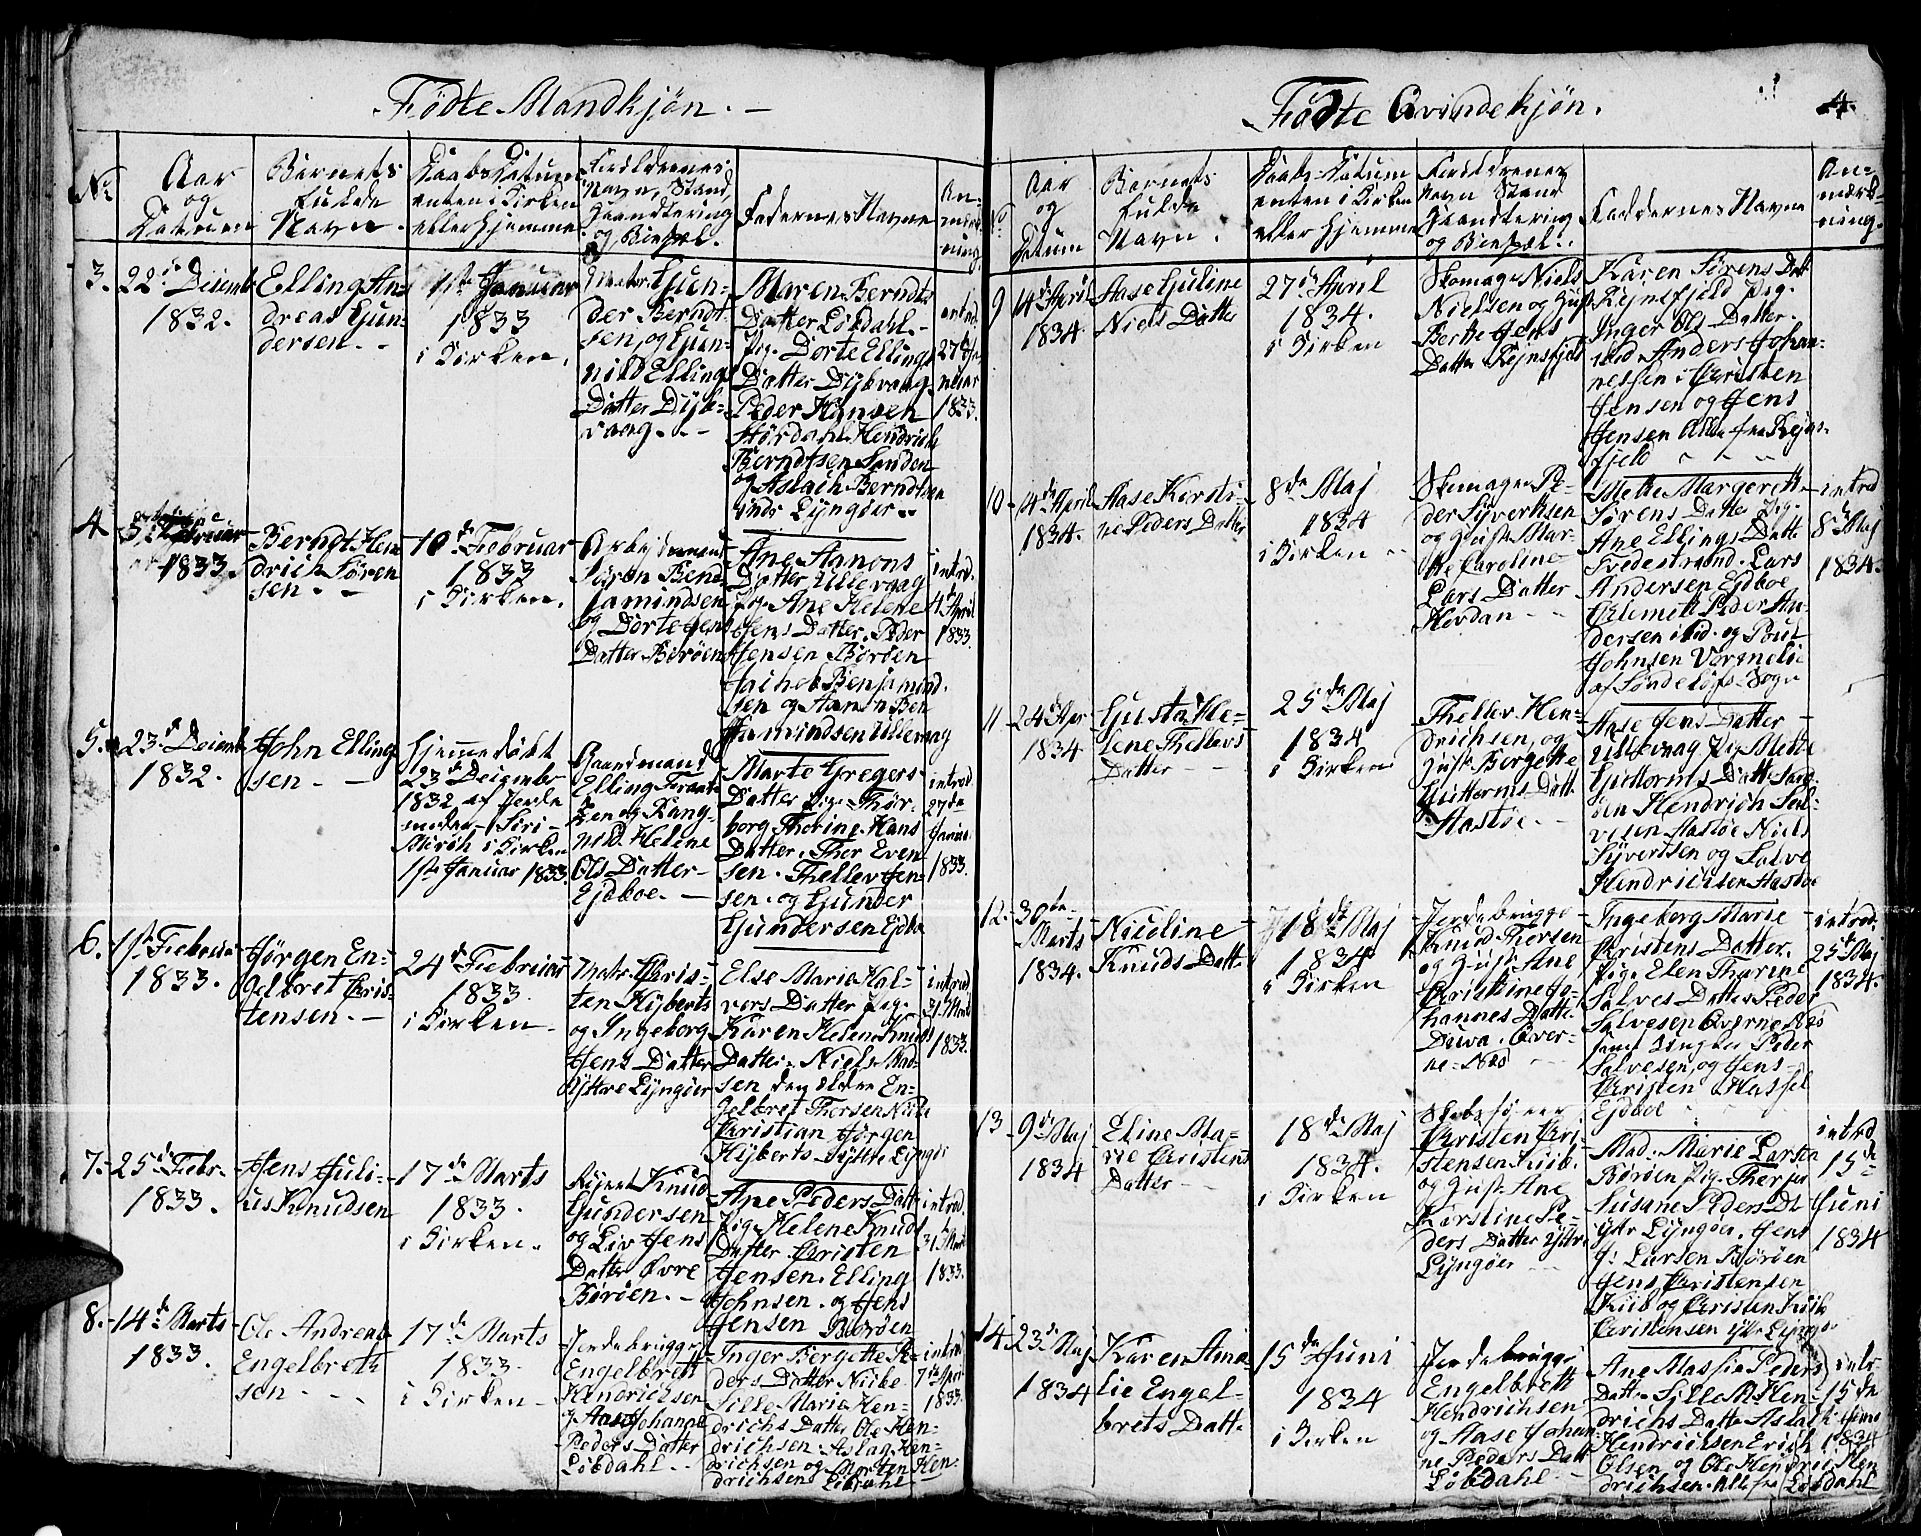 Fødte Mandkjøn. —
No
Aar
og
Datum
Barnets
fulde
Navn.
Daabs Datum
enten i Kirken
eller hjemme
Forældrenes
Navn, Stand,
Haandtering
og Bopæl.
Faddernes Navne
An-
mærk-
ning
3.
22de Decembr
1832.
Elling An-
dreas Gun-
dersen. -
1ste Januar
1833
i Kirken.
Gun-
der Berndt-
sen, og Gun-
nild Ellings
Datter Dyb-
vaag. -
Maren Berndts
Datter Løvdahl. -
Pig. Dorte Ellings
Datter Dybvaag.
Peder Hansen
Hendrich
Berndtsen Sanden
og Aslach Berndtsen
Lyngøer. -
introd.
27de Ja-
nuar
1833.
4
1833.
Berndt Hen-
drich Søren-
sen. -
10de Februar
1833
i Kirken.
Arbejdsmand
Søren Ben-
jamindsen
og Dorte Jens
Datter Børøen
Ane Aanons
Datter Ullevaag
Pig. Ane Helene
Jens Datter. Peder
Jensen Børøen
Jachob Benjamind-
sen og Aanon Ben-
jamindsen Ullevaag
introd.
4de April
1833.
5.
23de Decemb
1832.
John Elling-
sen. -
Hjemmedøbt
23de Decembr
1832 af Jorde-
moder Siri
i Kirken
1ste Januar 1833.
Gaardmand
Elling
og Rang-
nild Helene
Ols Datter
Ejdboe. -
Marte Gregers
Datter Pig. Thor-
borg Thorine Hans
Datter. Thor Even-
sen. Thellev Jen-
sen. og Gunder
Gundersen Ejdboe
introd.
27de
Januar
1833.
6.
1ste Februar
1833.
Jørgen En-
gelbret Chris-
tensen. -
24de Februar
1833.
i Kirken. -
Matr. Chris-
ten Nyberts
og Ingeborg
Jens Datter
Yttre Lyngøer
Else Maria Hal-
vors Datter Pig.
Karen Helene Knuds
Datter. Niels Mad-
sen den eldre En-
gelbret Thorsen
Christian Jørgen
Nyberts Yttre Lyngør
introd.
31 Marts
1833.
7.
25de Febr.
1833.
Jens Juli-
us Knudsen
17de Marts
1833.
i Kirken.
Knud
Gundersen
og Liv Jens
Datter Øvre
Børøen. -
Ane Peders Datter
Pig. Helene Knuds
Datter Christen
Jensen. Elling
Johnsen. og Jens
Jensen Børøen
introd.
31 Marts
1833.
8.
14de Marts
1833.
Ole Andreas
Engelbret-
sen. -
17de Marts
1833.
i Kirken
Jordebruger
Engelbrett
Hendrichsen
og Aase Johanne
Peders Datter
Løvdahl. -
Inger Bergette Pe-
ders Datter
Sille Maria Hen-
drichs Datter Ole Hen-
drichsen. Aslag Hen-
drichsen og Morten Hen-
drichsen Løvdahl
introd.
7de April
1833.
Fødte Qvindekjøn.
4.
No
Aar
og
Datum
Barnets
fulde
Navn.
Daabs-Datum
enten i Kirken
eller hjemme
Forældrenes
Navn Stand
Haandtering
og Bopæl.
Faddernes Navne
An-
mærk-
ning.
9
14de April
1834
Aase Guline
Niels Datter
27de April
1834.
i Kirken
Skomager Niels
Nielsen og Hust.
Berthe Jens
Datter Rejnsfjeld
Karen Sørens Dat
Rejnsfjeld Pig.
Inger Ols Datter.
ibid Anders Johan-
nessen Christen
Jensen og Jens
Jensen Alle fra Rejns-
fjeld
10
14de April
1834.
Aase Kirsti-
ne Peders Datter
8de Maj
1834
i Kirken
Skomager Pe-
der Syvertsen
og Hust. Mar-
the Caroline
Lars Datter
Hovdan
Mette Margerette
Sørens Datter Pig.
Ane Ellings Datt
Tvedestrand. Lars
Andersen Ejdboe
Peder An-
dersen ibid. og Poul
Johnsen
af Søndeløfs-Sogn
introd
8de Maj
1834.
11
24de Apr
1834
Gusta He-
lene Thellevs
Datter
25de Maj
1834
i Kirken
Thellev Hen-
drichsen, og
Hust. Bergette
Guttorms Datt
Hastøe. -
Aase Jens Datter
Ullevaag Pig. Mette
Guttorms Datt. San-
den Hendrich Sal-
vesen Hastøe Niels
Syvertsen og Salve
Hendrichsen Hastøe
12.
30te
Marts
1834.
Nicoline
Knuds Datt.
18de Maj
1834
i Kirken
Jordebruger
Knud Thorsen
og Hust. Ane
Christine Jo-
hannes Datter
Qver-
ne-Næs
Ingeborg Marie
Christens Datter.
Pig. Elen Tharine
Salves Datter Peder
Salvesen Qværne Næs
samt Peder
Salvesen, og Jens
Christen Hassel
Ejdboe
introd.
25de Maj
1834.
13
9de Maj
1834
Eline Ma-
rie Christens
Datter
18de Maj
1834.
i Kirken
Skibsfører
Christen Chri-
stensen Kiib.
og Hust. Ane
Kirstine Pe-
ders Datter Yttre
Lyngøer
Mad. Marie Larsen
Børøen Pig. Therese
Susane Peders Dt
Yttr Lyngøer. Jens
J. Larsen Børøen
Jens Christensen
Kiib og Christen Kiib
Christensen Yttr Lyngør
introd
15de
Juni
1834
14
23de Maj
1834
Karen Ama-
lie Engel-
brets Datt.
15de Juni
1834
i Kirken
Jordebruger
Engelbrett
Hendrichsen
og Aase Johan-
ne Peders Datt
Løvdahl
Ane Massie Peders
Datter Sille M. Hen-
drichs Datter Aslach
Hendrichsen Erich
Olsen og Ole Hendrich Hen-
drichsen. Alle fra Løvdahl
intr.
15de
Juni
1834